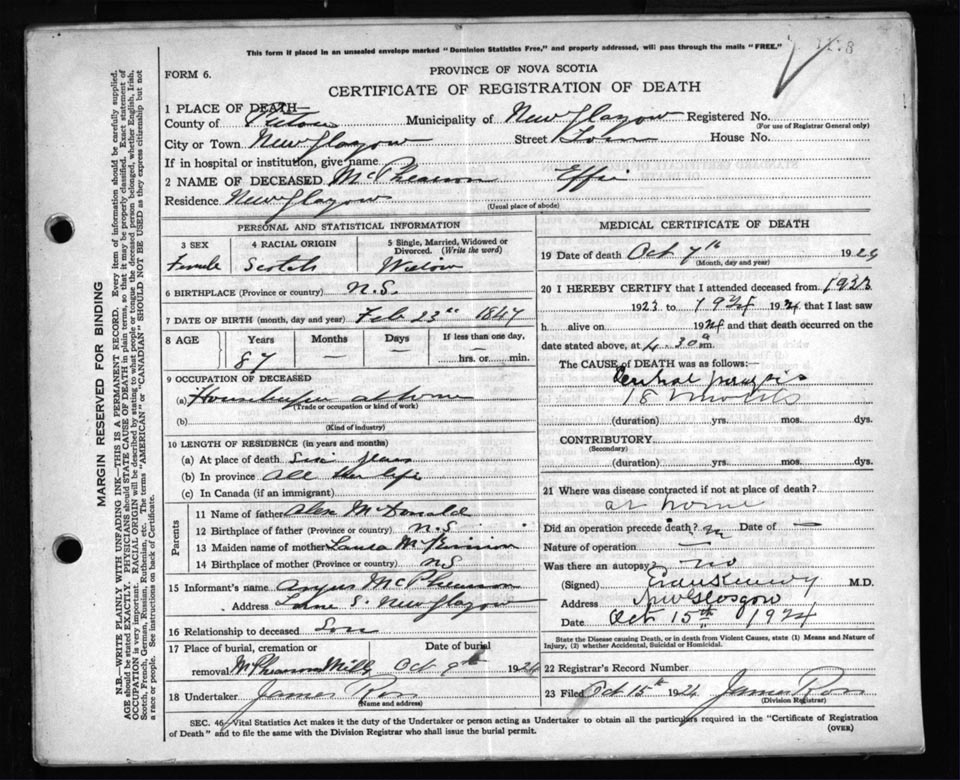 This form if placed in an unsealed envelope marked "Dominion Statistics Free," and properly addressed, will pass through the mails "FREE."
FORM 6.
PROVINCE OF NOVA SCOTIA
CERTIFICATE OF REGISTRATION OF DEATH
1 PLACE OF DEATH—
County of Pictou Municipality of New Glasgow Registered No.
(For use of Registrar General only)
City or Town New Glasgow Street House No.
If in hospital or institution, give name
2 NAME OF DECEASED McPhearson Effie
Residence New Glasgow
(Usual place of abode)
PERSONAL AND STATISTICAL INFORMATION
3 SEX 4 RACIAL ORIGIN 5 Single, Married, Widowed or Divorced. (Write the word)
Female Scotch Widow
6 BIRTHPLACE (Province or country) N.S.
7 DATE OF BIRTH (month, day and year) Feb 23rd 1847
8 AGE Years Months Days If less than one day,
87 — — hrs. or min.
9 OCCUPATION OF DECEASED
(a) Housekeeper at home
(Trade or occupation or kind of work)
(b)
(Kind of industry)
10 LENGTH OF RESIDENCE (in years and months)
(a) At place of death Six years
(b) In province All her life
(c) In Canada (if an immigrant)
Parents
11 Name of father Alex McDonald
12 Birthplace of father (Province or country) N.S
13 Maiden name of mother McKinnon
14 Birthplace of mother (Province or country) NS
15 Informant's name Angus McPhearson
Address Lorne S. New Glasgow
16 Relationship to deceased Son
17 Place of burial, cremation or Date of burial
removal McPhearsons Mills Oct 9th 1924
18 Undertaker James Ross
(Name and address)
MEDICAL CERTIFICATE OF DEATH
19 Date of death Oct 7th 1924
(Month, day and year)
20 I HEREBY CERTIFY that I attended deceased from
1923 to 1924 1924 that I last saw
h alive on 1924 and that death occurred on the
date stated above, at 4.30 a m.
The CAUSE of DEATH was as follows:
18 months
(duration) yrs. mos. dys.
CONTRIBUTORY
(Secondary)
(duration) yrs. mos. dys.
21 Where was disease contracted if not at place of death?
at home
Did an operation precede death? no Date of —
Nature of operation —
Was there an autopsy? no
(Signed) Kennedy M.D.
Address New Glasgow
Date Oct 15th 1924
State the Disease causing Death, or in death from Violent Causes, state (1) Means and Nature of Injury, (2) whether Accidental, Suicidal or Homicidal.
22 Registrar's Record Number
23 Filed Oct 15th 1924 James Ross
(Division Registrar)
SEC. 46—Vital Statistics Act makes it the duty of the Undertaker or person acting as Undertaker to obtain all the particulars required in the "Certificate of Registration
of Death" and to file the same with the Division Registrar who shall issue the burial permit.
(OVER)
MARGIN RESERVED FOR BINDING
N.B.—WRITE PLAINLY WITH UNFADING INK—THIS IS A PERMANENT RECORD. Every item of information should be carefully supplied.
AGE should be stated EXACTLY. PHYSICIANS should STATE CAUSE OF DEATH in plain terms, so that it may be properly classified. Exact statement of
OCCUPATION is very important. RACIAL ORIGIN will be described by stating to what people or tongue the deceased person belonged, whether English, Irish,
Scotch, French, German, Russian, Ruthenian, etc. The terms "AMERICAN" or "CANADIAN" SHOULD NOT BE USED as they express citizenship but not
a race or people. See instructions on back of Certificate.